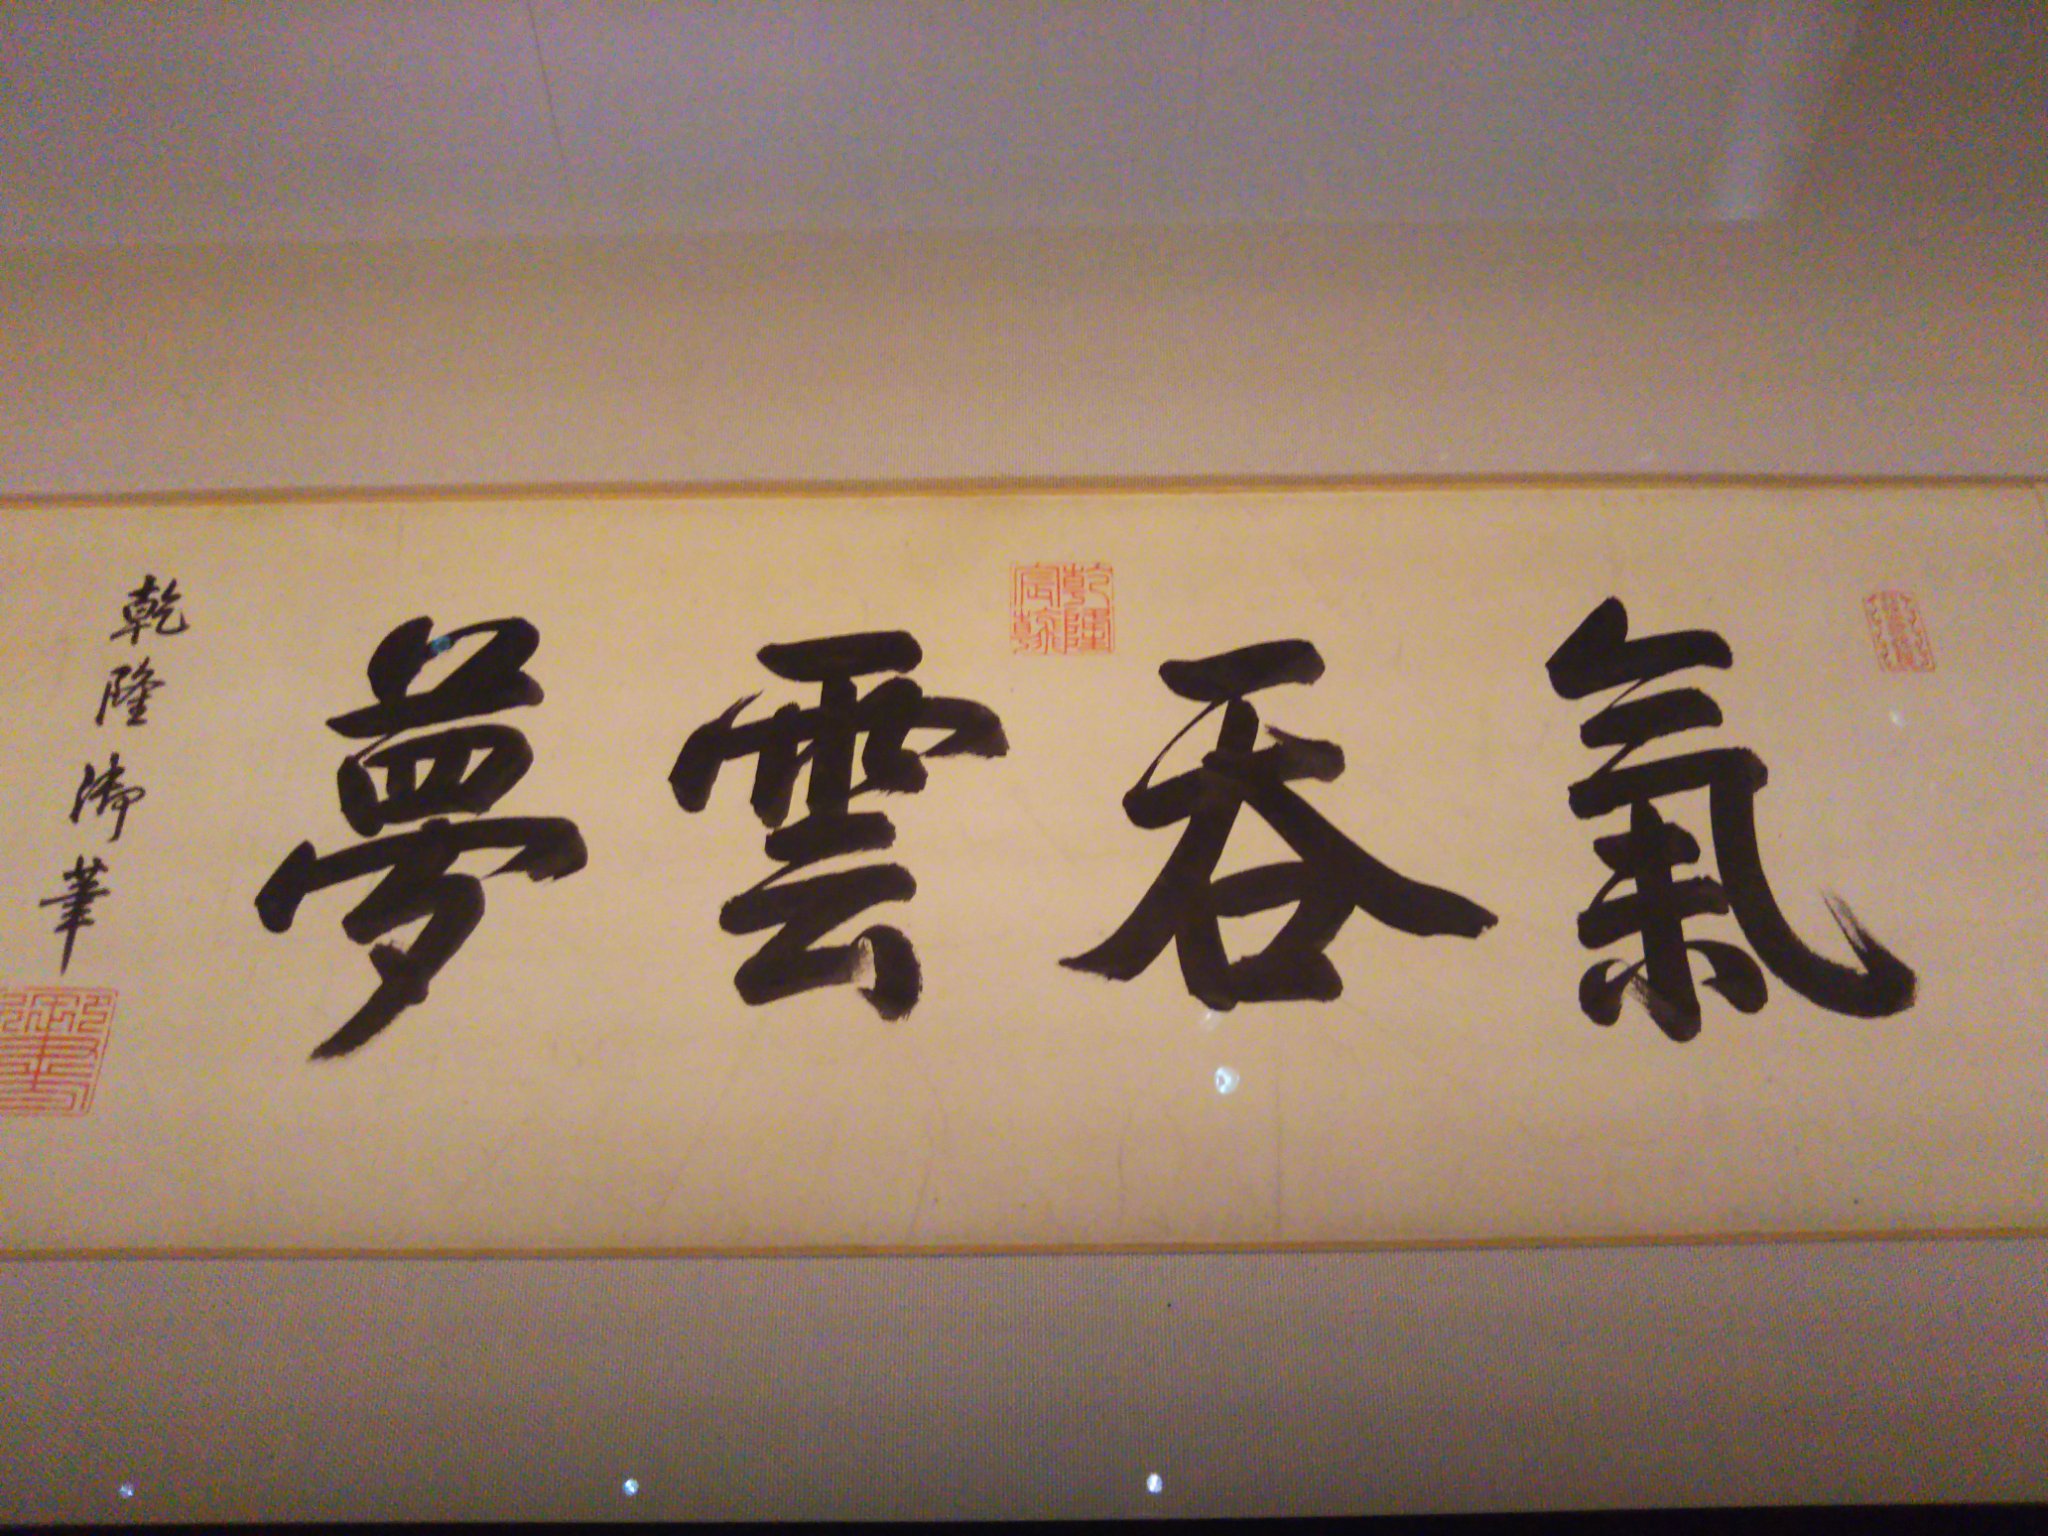 氣吞雲夢
乾隆宸翰
乾隆御筆